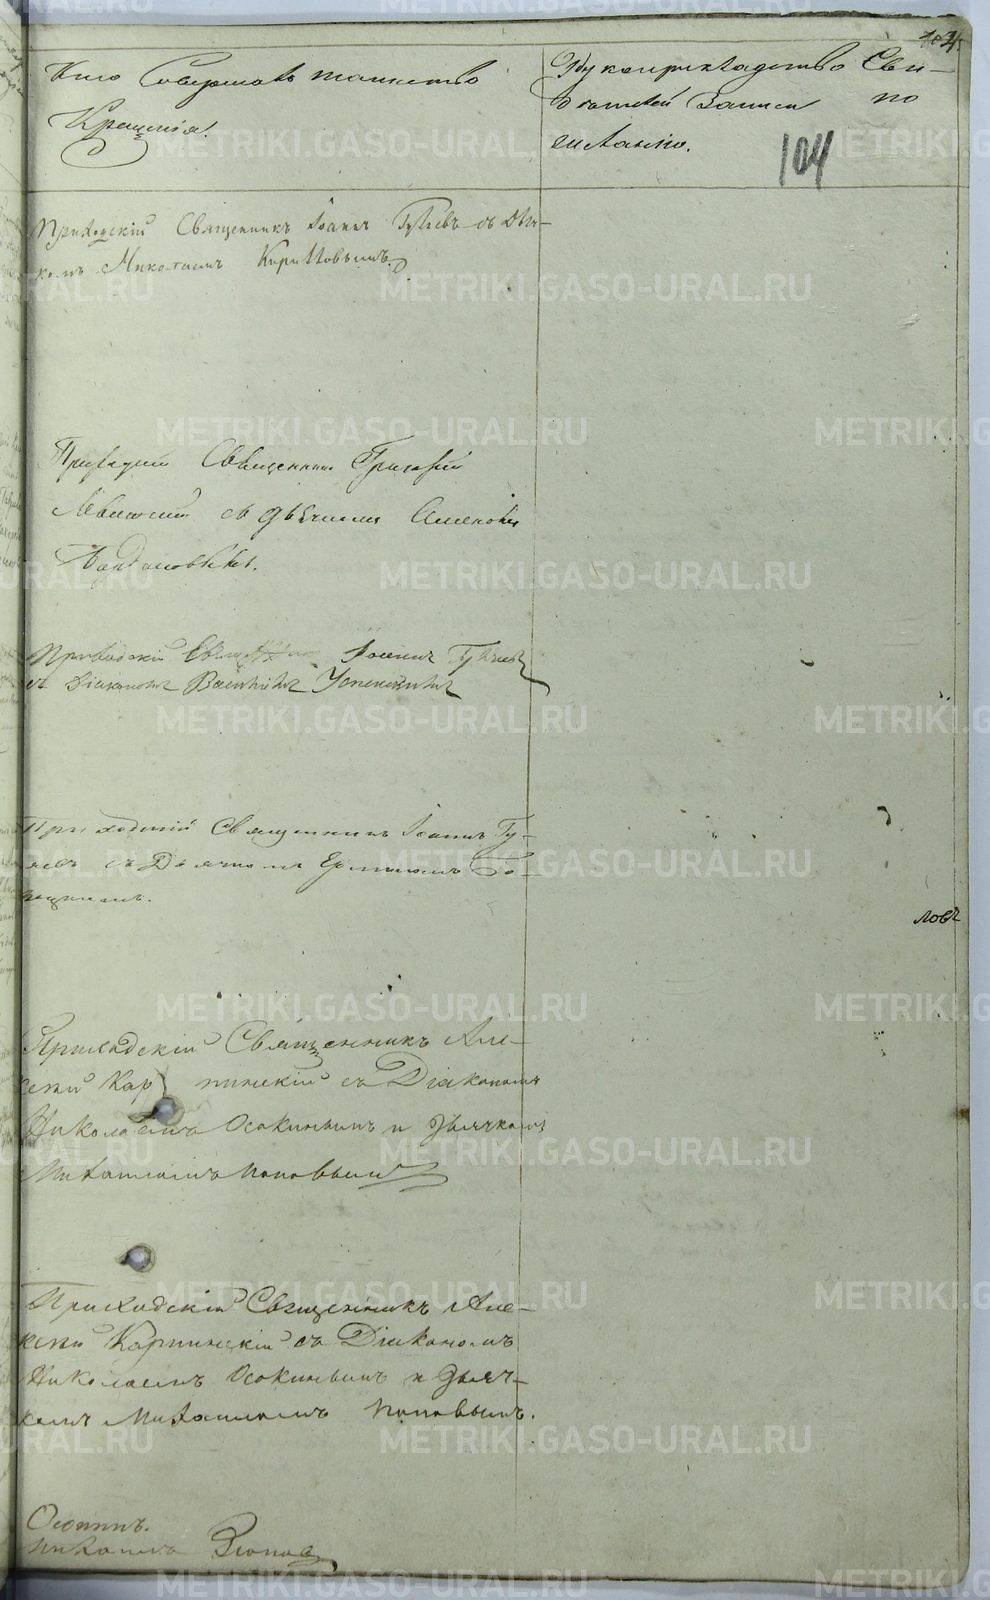 104
Кто Совершалъ таинство
Крещенія.
Рукоприкладство Сви-
дѣтелей записи по
желанію.
104
Приходскій Священникъ Іоаннъ Гуляевъ съ Дьяч-
комъ Николаемъ Кирилловымъ.
Священникъ Григорій
съ дьячкомъ
Приходскій Священникъ Іоаннъ Гуляевъ
съ Діакономъ Успенскимъ
Приходскій Священникъ Іоаннъ Гу-
ляевъ съ Дьячкомъ
ловъ
Приходскій Священникъ Але-
ксій Карпинскій съ Діакономъ
Николаемъ Осокинымъ и Дьячкомъ
Михаиломъ Поповымъ
Приходскій Священникъ Але-
ксій Карпинскій съ Діакономъ
Николаемъ Осокинымъ и Дьяч-
комъ Михаиломъ Поповымъ.
METRIKI.GASO-URAL.RU